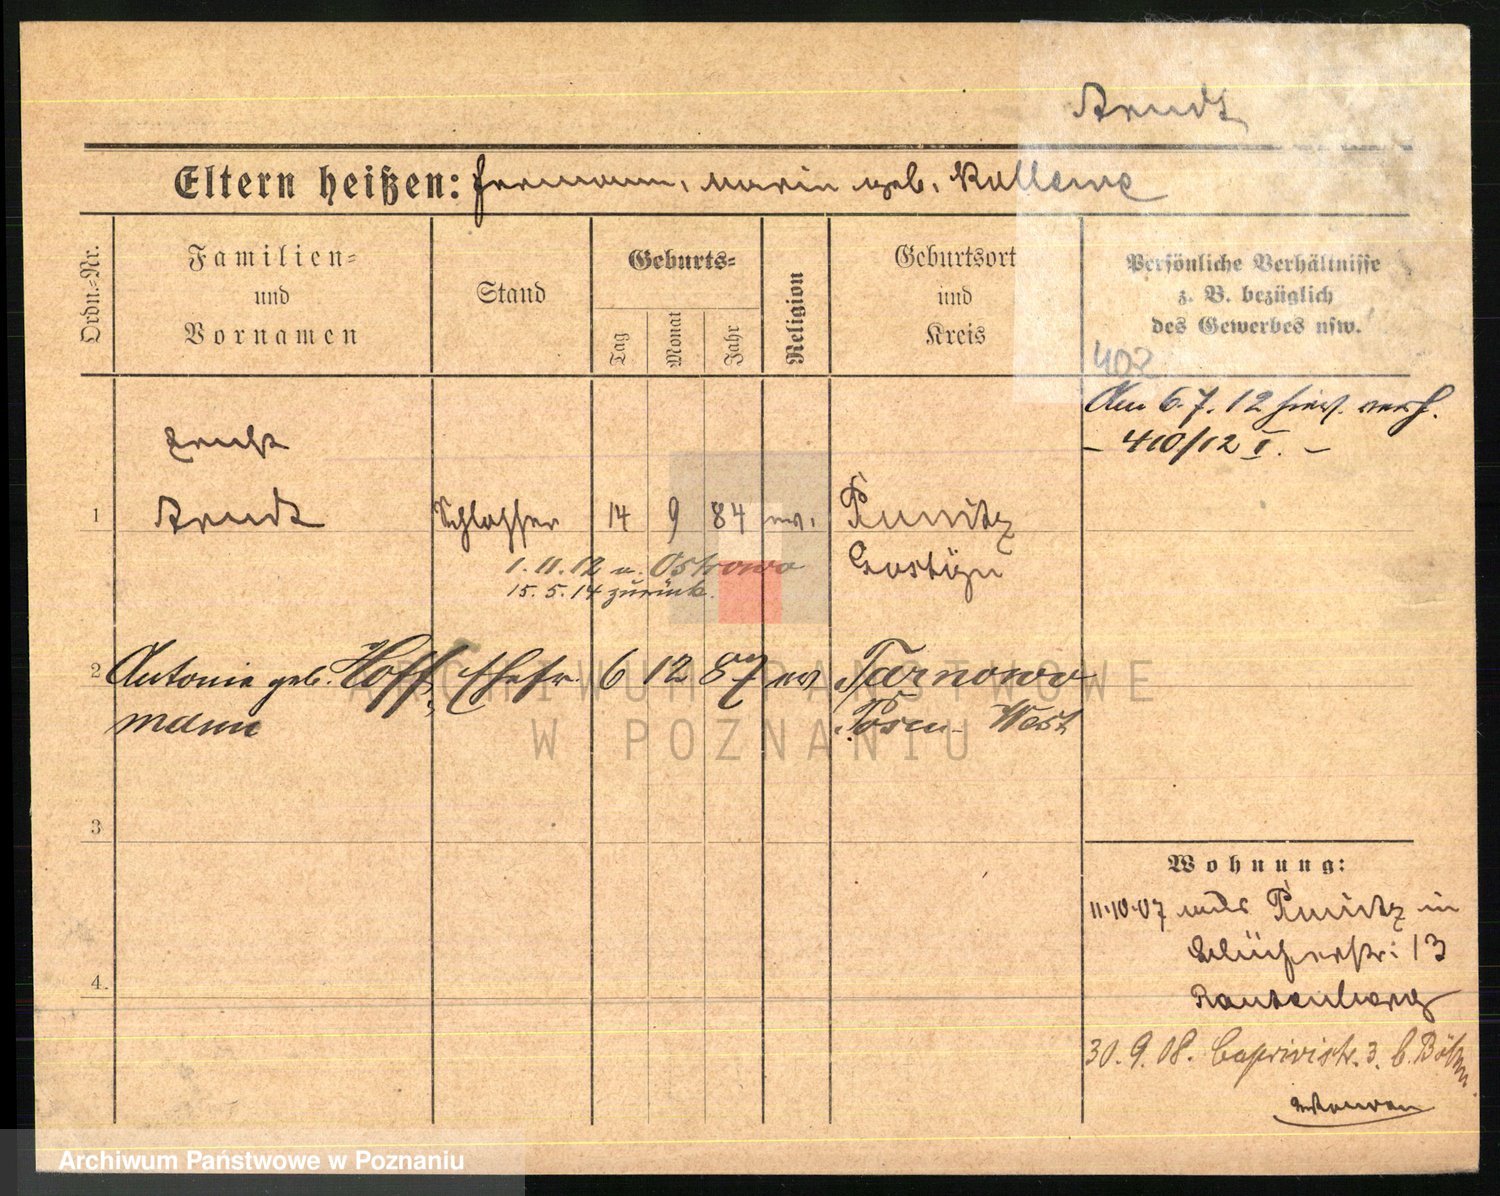 Arndt
Eltern heißen: Hermann, Marie geb.
Ordn.-Nr.
Familien-
und
Vornamen
Stand
Geburts-
Tag
Monat
Jahr
Religion
Geburtsort
und
Kreis
Persönliche Verhältnisse
z. B. bezüglich
des Gewerbes usw.
402
Am 6.7.12 hier. verh.
- 410/12 I. -
Ernst
1 Arndt Schlosser 14 9 84 ev. Punitz
Gostÿn
1.11.12 n. Ostrowo
15.5.14 zurück.
2 Antonie geb. Hoff- Ehefr. 6 12 87 ev Tarnowo
mann Posen-West
3
4.
Wohnung:
11.10.07 aus Punitz in
Blücherstr: 13
Rautenberg
30.9.08. Caprivistr. 3. b. Böhm
ARCHIWUM PAŃSTWOWE
W POZNANIU
Archiwum Państwowe w Poznaniu